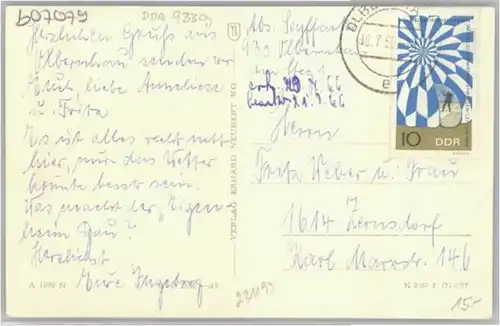 b07079
DDA 9330
Herzlichen Gruß aus
Olbernhau senden wir
Euch, liebe Anneliese
u. Fritz
Es ist alles recht nett
hier, nur das Wetter
könnte besser sein.
Was macht der "Eigen-
heim Bau"?
Herzlichst
Eure Ingeborg
A
N
VERLAG ERHARD NEUBERT KG
Abs. Seyffart
930 Olbernhau
OLBE
e
10 DDR
Herrn
Fritz Weber u. Frau
1614 Zernsdorf
Karl-Marxstr. 146
15,-